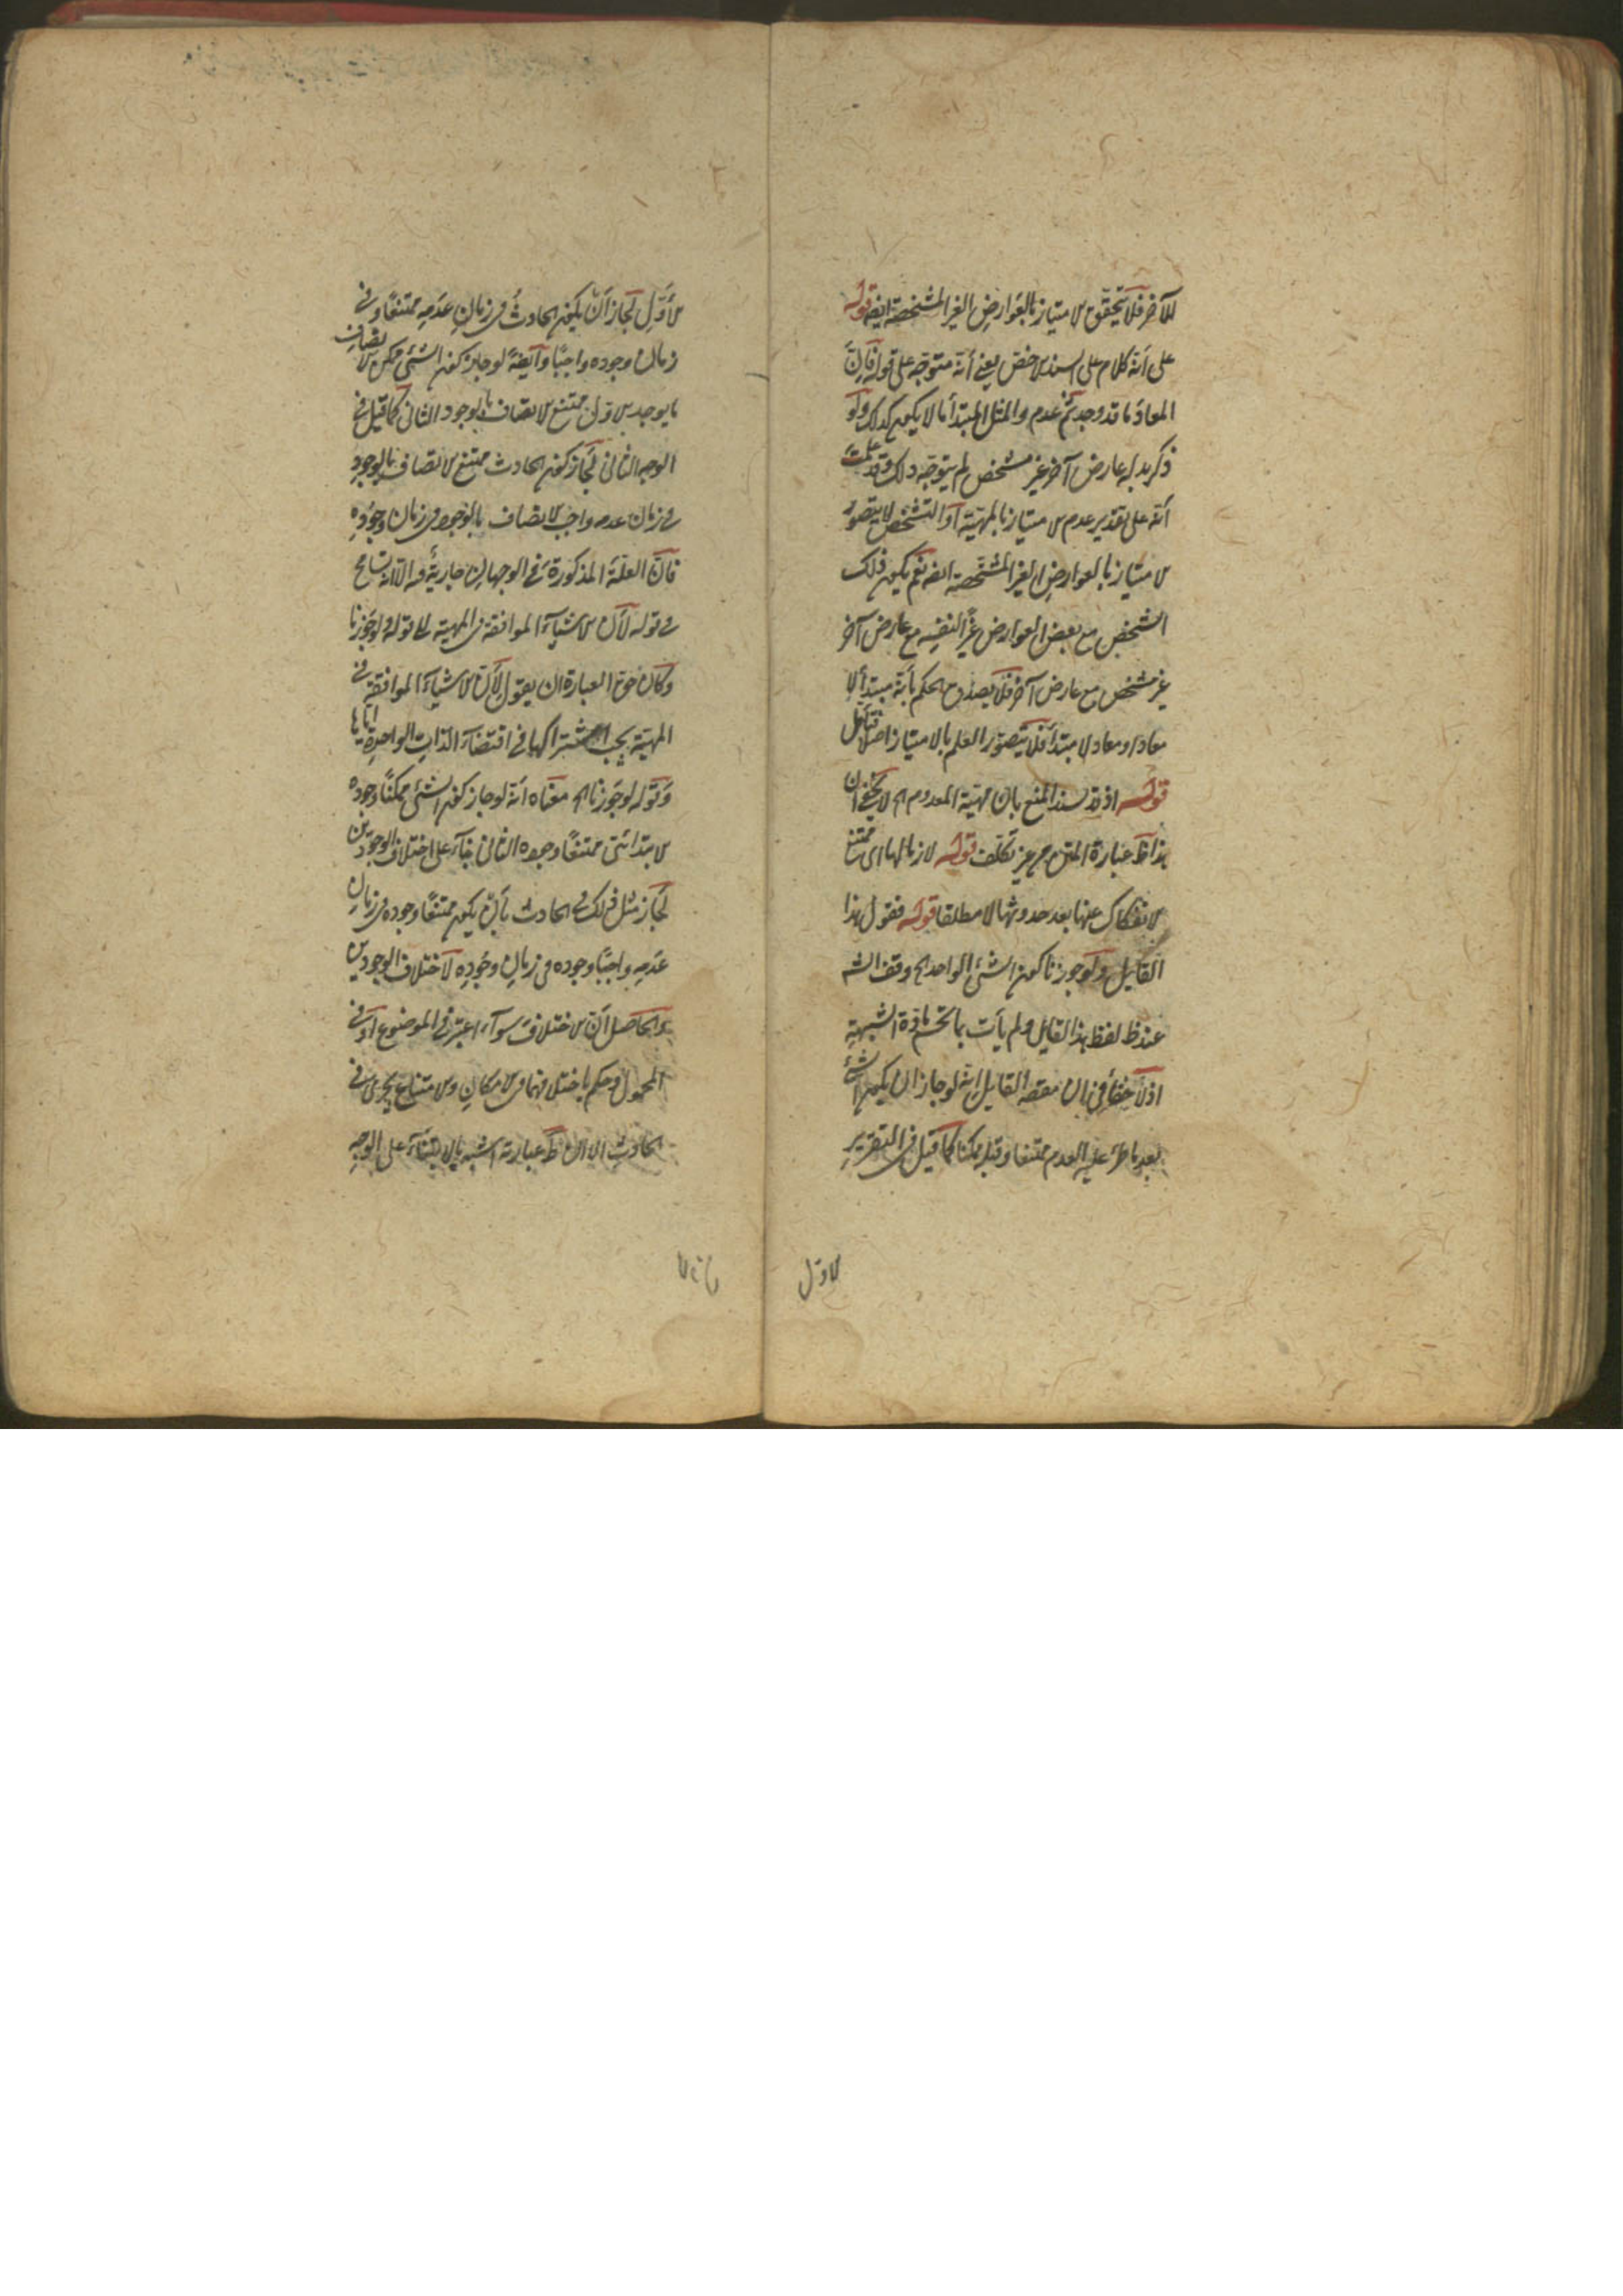 للآخر فلا يتحقق الامتياز بالعوارض الغير المشخصة ايضه قوله
على أنه كلام على السند الاخص يعنى أنه متوجه على قوله فإن
المعاد ما قد وجد ثم عدم والمثل المبتدأ ما لا يكون كذلك ولو
ذكر بدله عارض آخر غير مشخص لم يتوجه ذلك وقد علمت
أنه على تقدير عدم الامتياز بالمهية أو التشخص لا يتصور
الامتياز بالعوارض الغير المشخصة ايضه نعم يكون ذلك
الشخص مع بعض العوارض غير النفسه مع عارض آخر
غير مشخص مع عارض آخر فلا يصدق الحكم بأنه مبتدأ لا
معادا ومعاد لا مبتدأ فلا يتصور العلم بالامتياز اصلا فتأمل
قوله اذ قد سند المنع بان مهية المعدوم الخ لا يخفى ان
هذا ظ عبارة المتن من غير تكلف قوله لازما لها اى ممتنع
الانفكاك عنها بعد حدوثها لا مطلقا قوله فنقول هذا
القايل ولو جوزنا كون الشئ الواحد الخ وقف الشه
عند ظ لفظ هذا القايل ولم يأت بما تحسم مادة الشبهة
اذ لا خفأ فى ان مقصد القايل انه لو جاز ان يكون الشئ
بعد ما طرء عليه العدم ممتنعا وقبله ممكنا كما قيل فى التقرير
الاول
الأول لجاز أن يكون الحادث فى زمان عدمه ممتنعا وفى
زمان وجوده واجبا وأيضة لو جاز كون الشئ ممكن الاتصاف
بالوجود الاول ممتنع الاتصاف بالوجود الثانى كما قيل فى
الوجه الثانى لجاز كون الحادث ممتنع الاتصاف بالوجود
فى زمان عدمه واجب الاتصاف بالوجود فى زمان وجوده
فان العلة المذكورة فى الوجهان جارية فيه الا انه تسامح
فى قوله لأن الاشياء الموافقة فى المهية الى قوله ولو جوزنا
وكان حق العبارة ان يقول لأن الاشياء الموافقة فى
المهية يجب اشتراكها فى اقتضاء الذات الواحدة اياها
وقوله لو جوزنا الخ معناه أنه لو جاز كون الشئ ممكنا وجوده
الابتدائى ممتنعا وجوده الثانى بناء على اختلاف الوجودين
لجاز مثل ذلك فى الحادث بأن يكون ممتنعا وجوده فى زمان
عدمه واجبا وجوده فى زمان وجوده لاختلاف الوجودين
والحاصل أن الاختلاف سواء اعتبر فى الموضوع أو فى
المحمول وحكم باختلافهما فى الامكان والامتناع يجرى فى
الحادث الا ان ظ عبارته اشبه بالابتناء على الوجه